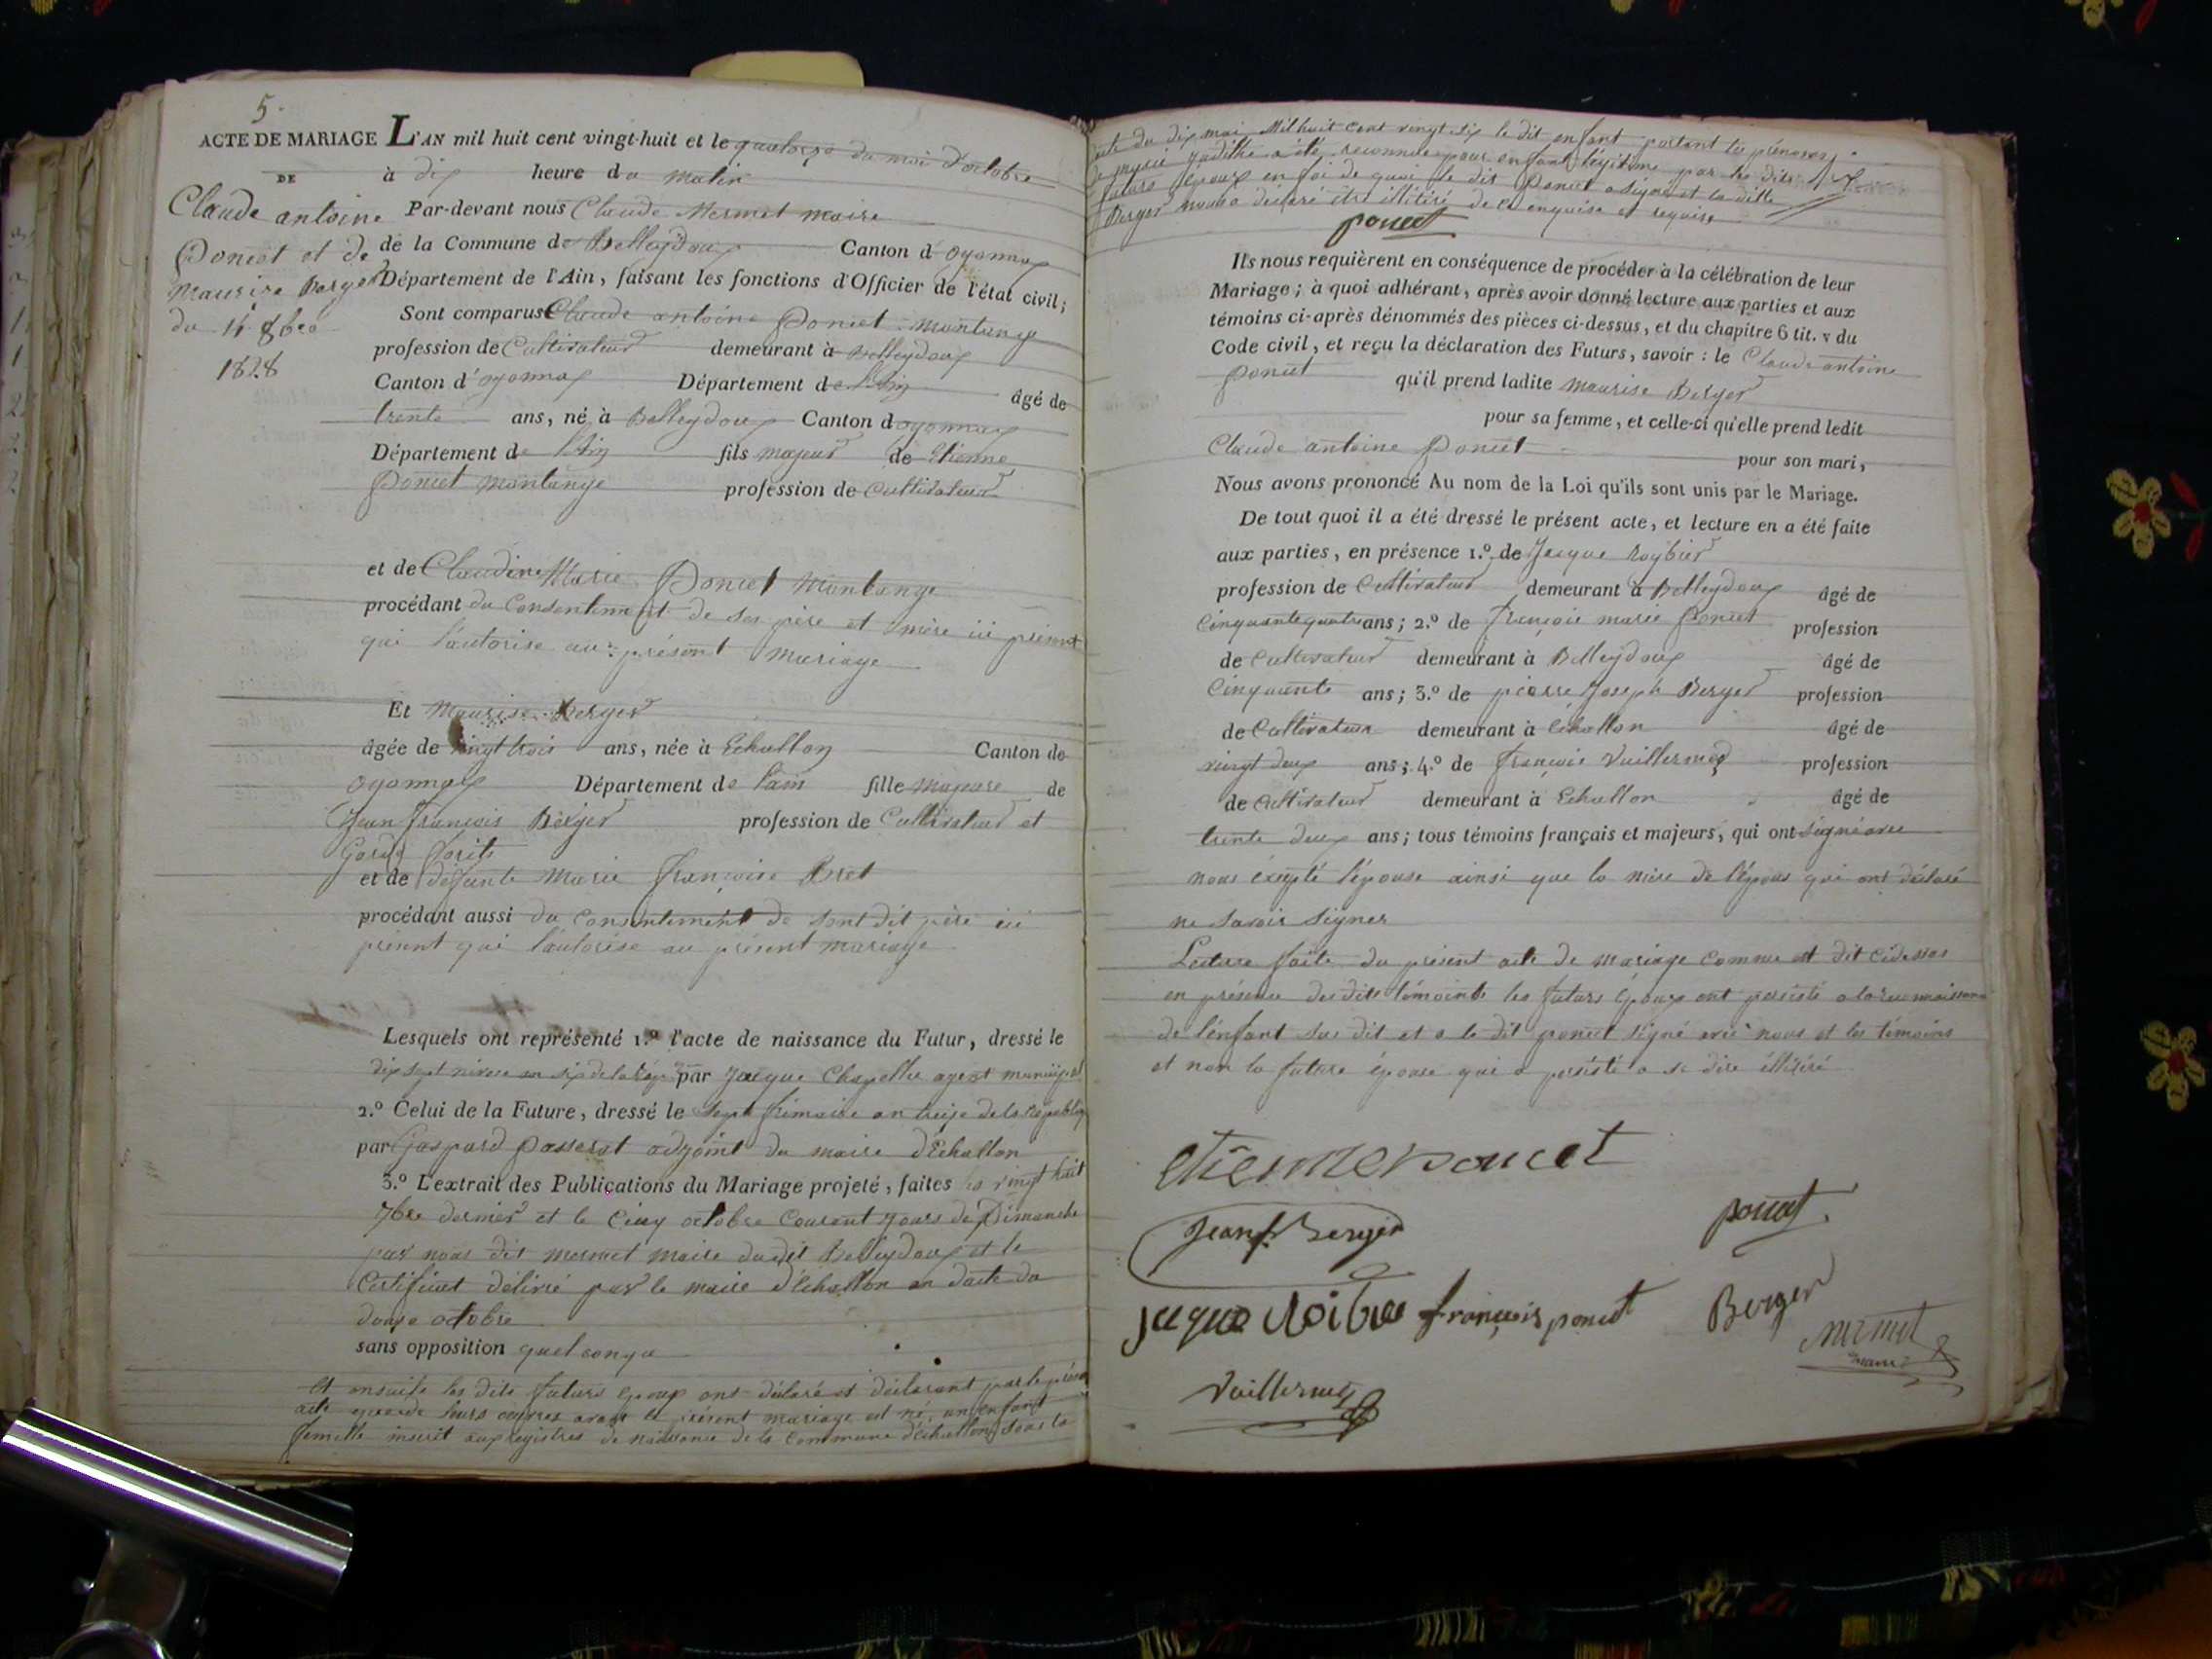 5.
ACTE DE MARIAGE
DE
Claude antoine
Poncet et de
Maurise Berger
du 14 8bre
1828
L'AN mil huit cent vingt-huit et le quatorze du moi d'octobre
à dix heure du matin
Par-devant nous Claude Mermet maire
de la Commune de Belleydoux Canton d'oyonnax
Département de l'Ain, faisant les fonctions d'Officier de l'état civil;
Sont comparus Claude antoine Poncet montange
profession de Cultivateur demeurant à Belleydoux
Canton d'oyonnax Département de l'Ain âgé de
trente ans, né à Belleydoux Canton d'oyonnax
Département de l'Ain fils majeur de Etienne
Poncet montange profession de Cultivateur
et de Claudine Marie Poncet Montange
procédant du Consentement de ses père et mère ici présent
qui l'autorise au présent mariage
Et Maurise Berger
âgée de vingt trois ans, née à Echallon Canton de
oyonnax Département de l'ain fille majeure de
Jean françois Berger profession de Cultivateur et
Garde forets
et de défunte Marie françoise Bret
procédant aussi du consentement de sont dit père ici
présent qui l'autorise au présent mariage
Lesquels ont représenté 1.º l'acte de naissance du Futur, dressé le
dix sept nivose an six de la rép. par Jacque Chapelle agent municipal
2.º Celui de la Future, dressé le sept frimaire an treize de la république
par Gaspard Passerat adjoint du maire d'Echallon
3.º L'extrait des Publications du Mariage projeté, faites les vingt huit
7bre dernier et le Cinq octobre Courant jours de Dimanche
par nous dit mermet maire dudit Belleydoux et le
Certificat délivré par le maire d'échallon en date du
douze octobre
sans opposition quelconque
Et ensuite les dits futurs époux ont déclaré et déclarent par le présent
acte que de leurs œuvres avant le présent mariage est né un enfant
femelle inscrit aux registres de naissance de la Commune d'échallon sous la
date du dix mai Mil huit cent vingt six le dit enfant portant les prénoms
de marie judithe a été reconnue pour enfant légitime par les dits
futurs époux en foi de quoi le dit Poncet a signé et la ditte
Berger nous a déclaré être illitéré de ce enquise et requise
poncet
Ils nous requièrent en conséquence de procéder à la célébration de leur
Mariage; à quoi adhérant, après avoir donné lecture aux parties et aux
témoins ci-après dénommés des pièces ci-dessus, et du chapitre 6 tit. v du
Code civil, et reçu la déclaration des Futurs, savoir: le Claude antoine
Poncet qu'il prend ladite maurise Berger
pour sa femme, et celle-ci qu'elle prend ledit
Claude antoine Poncet pour son mari,
Nous avons prononcé Au nom de la Loi qu'ils sont unis par le Mariage.
De tout quoi il a été dressé le présent acte, et lecture en a été faite
aux parties, en présence 1.º de Jacque Roybier
profession de Cultivateur demeurant à Belleydoux âgé de
Cinquante quatre ans; 2.º de françois marie Poncet profession
de Cultivateur demeurant à Belleydoux âgé de
Cinquante ans; 3.º de pierre Joseph Berger profession
de Cultivateur demeurant à échallon âgé de
vingt deux ans; 4.º de françois Vuillermoz profession
de Cultivateur demeurant à Echallon âgé de
trente deux ans; tous témoins français et majeurs, qui ont signé avec
nous éxcepté l'épouse ainsi que la mère de l'époux qui ont déclaré
ne savoir signer
Lecture faite du présent acte de mariage comme est dit ci dessus
en présence des dits témoints les futurs époux ont persisté a la reconnaissance
de l'enfant sus dit et a le dit poncet signé avec nous et les témoins
et non la future épouse qui a persisté a se dire illitéré
etienne poncet
Jean f. Berger
poncet
jaque Roibie
françois poncet
Berger
mermet
maire
Vuillermoz